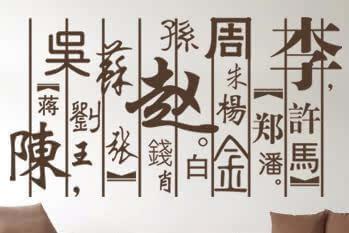 李，許馬】
【鄭潘。
周朱楊金
孫趙。白
錢肖
蘇張】
吳劉王，
【蔣陳